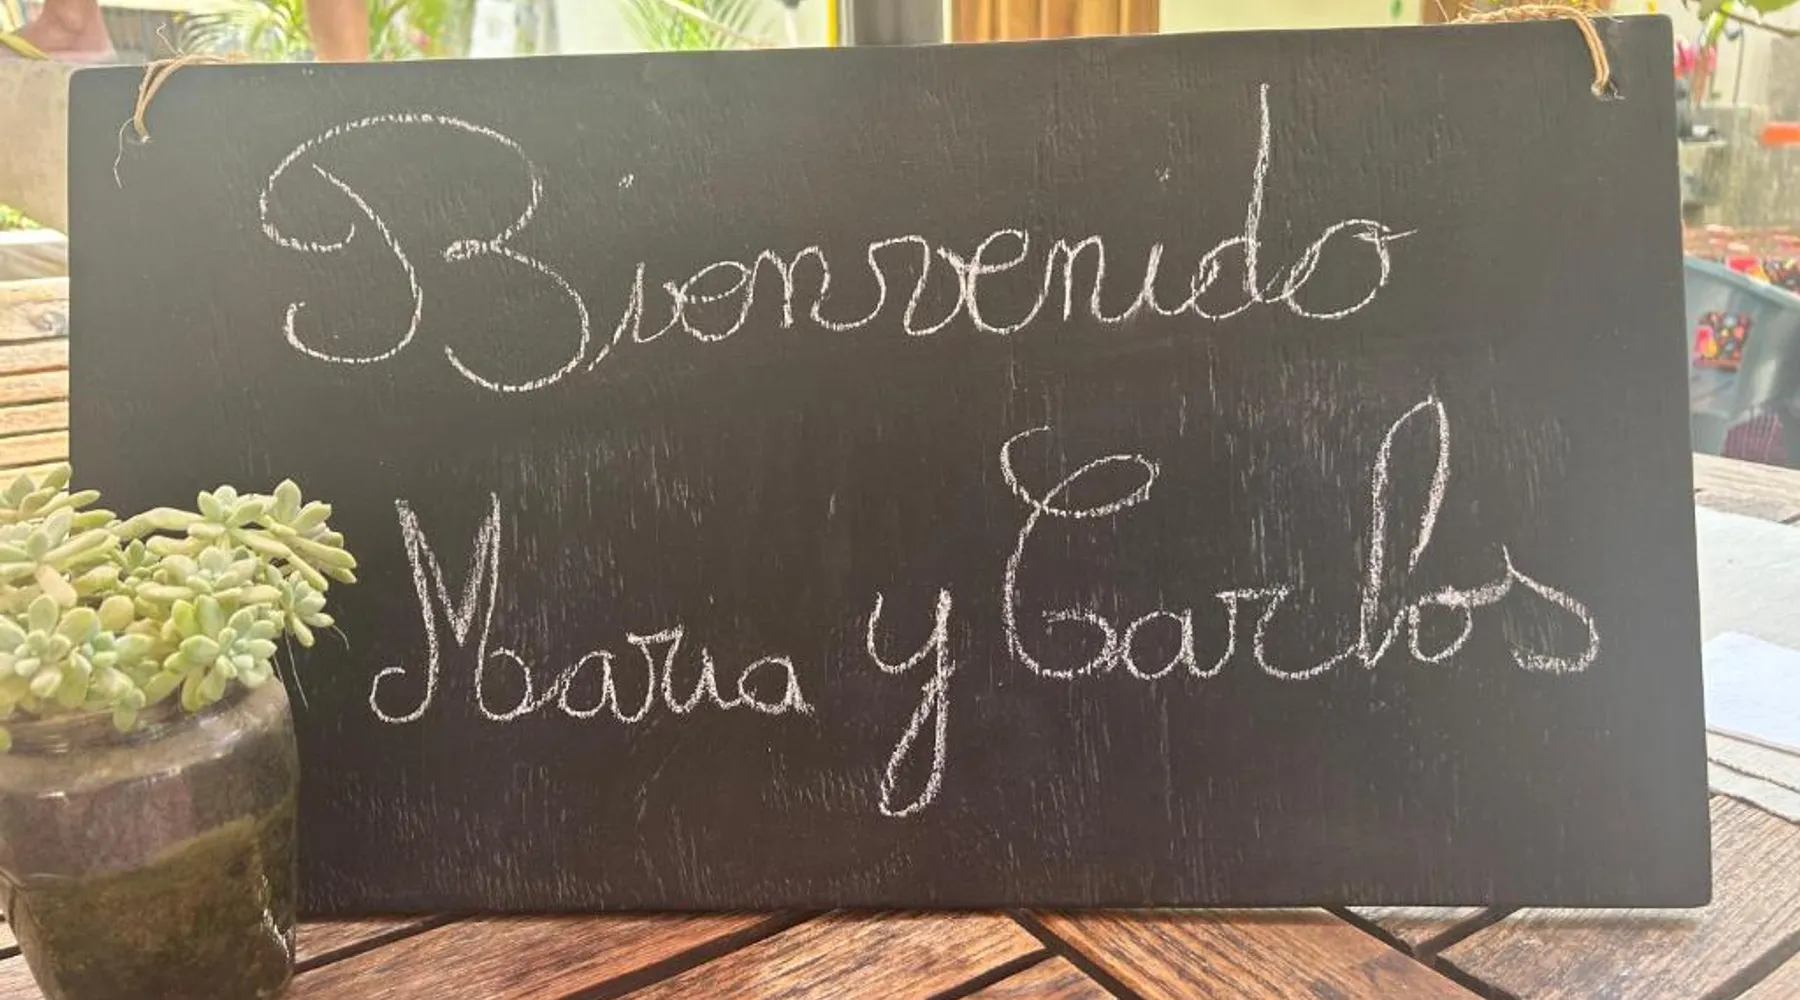 Bienvenido
Maria y Carlos